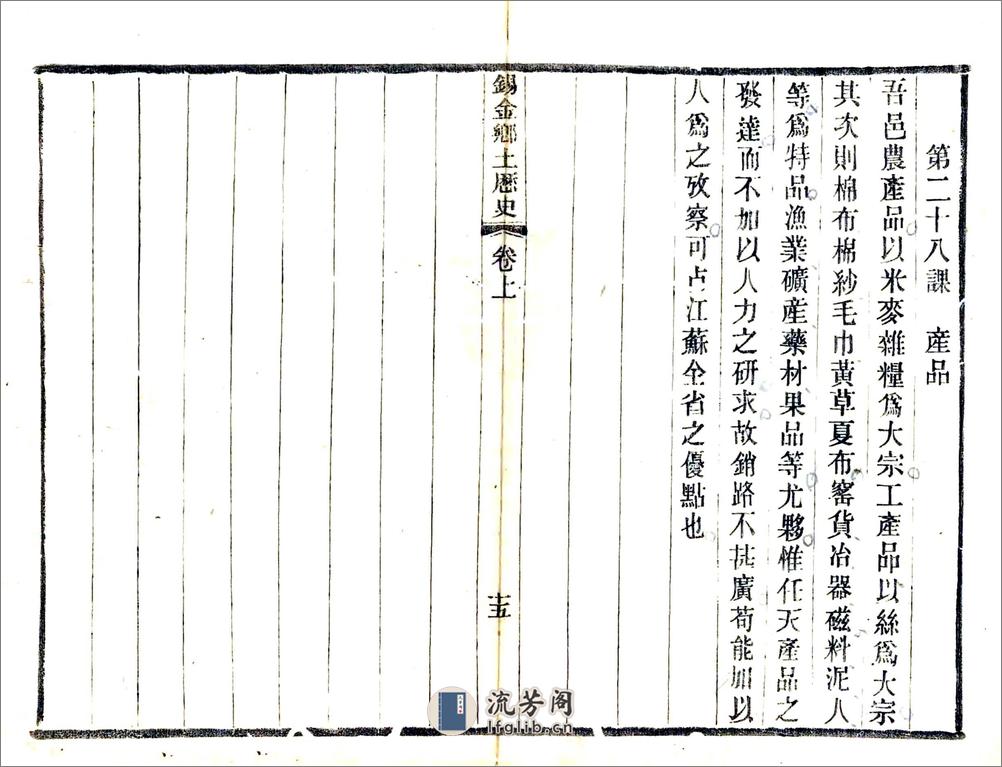 第二十八課　產品
吾邑農產品以米麥雜糧爲大宗工產品以絲爲大宗
其次則棉布棉紗毛巾黃草夏布窰貨冶器磁料泥人
等爲特品漁業礦產藥材果品等尤夥惟任天產品之
發達而不加以人力之研求故銷路不甚廣苟能加以
人爲之攷察可占江蘇全省之優點也
錫金鄉土歷史
卷上
十五
流芳阁
lfglib.cn